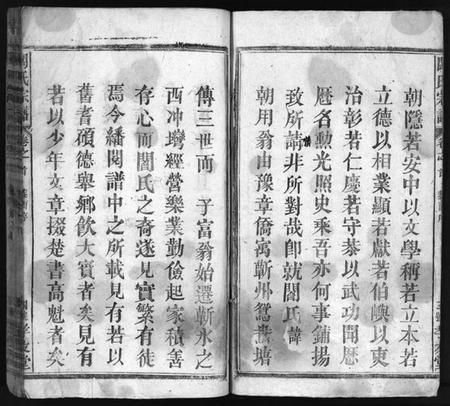 朝隱若安中以文學稱若立本若
立德以相業顯若獻若伯嶼以吏
治彰若仁慶若守恭以武功開歷
歷名勲光照史乘吾亦何事鋪揚
致所請非所對哉卽就閻氏諱
朝用翁由豫章僑寓蘄州鴛鴦塘
傳三世而 子富翁始遷蘄水之
西冲灣經營樂業勤儉起家積善
存心而閻氏之奇遂見實繁有徒
焉今繙閱譜中之所載見有若以
舊耆碩德舉鄉飲大賓者矣見有
若以少年文章掇楚書高魁者矣